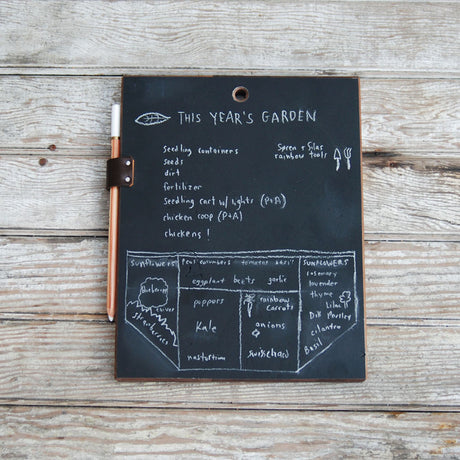 THIS YEAR'S GARDEN
seedling containers
seeds
dirt
fertilizer
seedling cart w/ lights (P+A)
chicken coop (P+A)
chickens!
Søren + Silas
rainbow tools
SUNFLOWERS
blueberries
clover
strawberries
Peas cucumbers tomatoes basil
eggplant beets garlic
peppers
Kale
nasturtium
rainbow
carrots
onions
swisschard
SUNFLOWERS
rosemary
lavender
thyme
lilac
Dill Parsley
cilantro
Basil